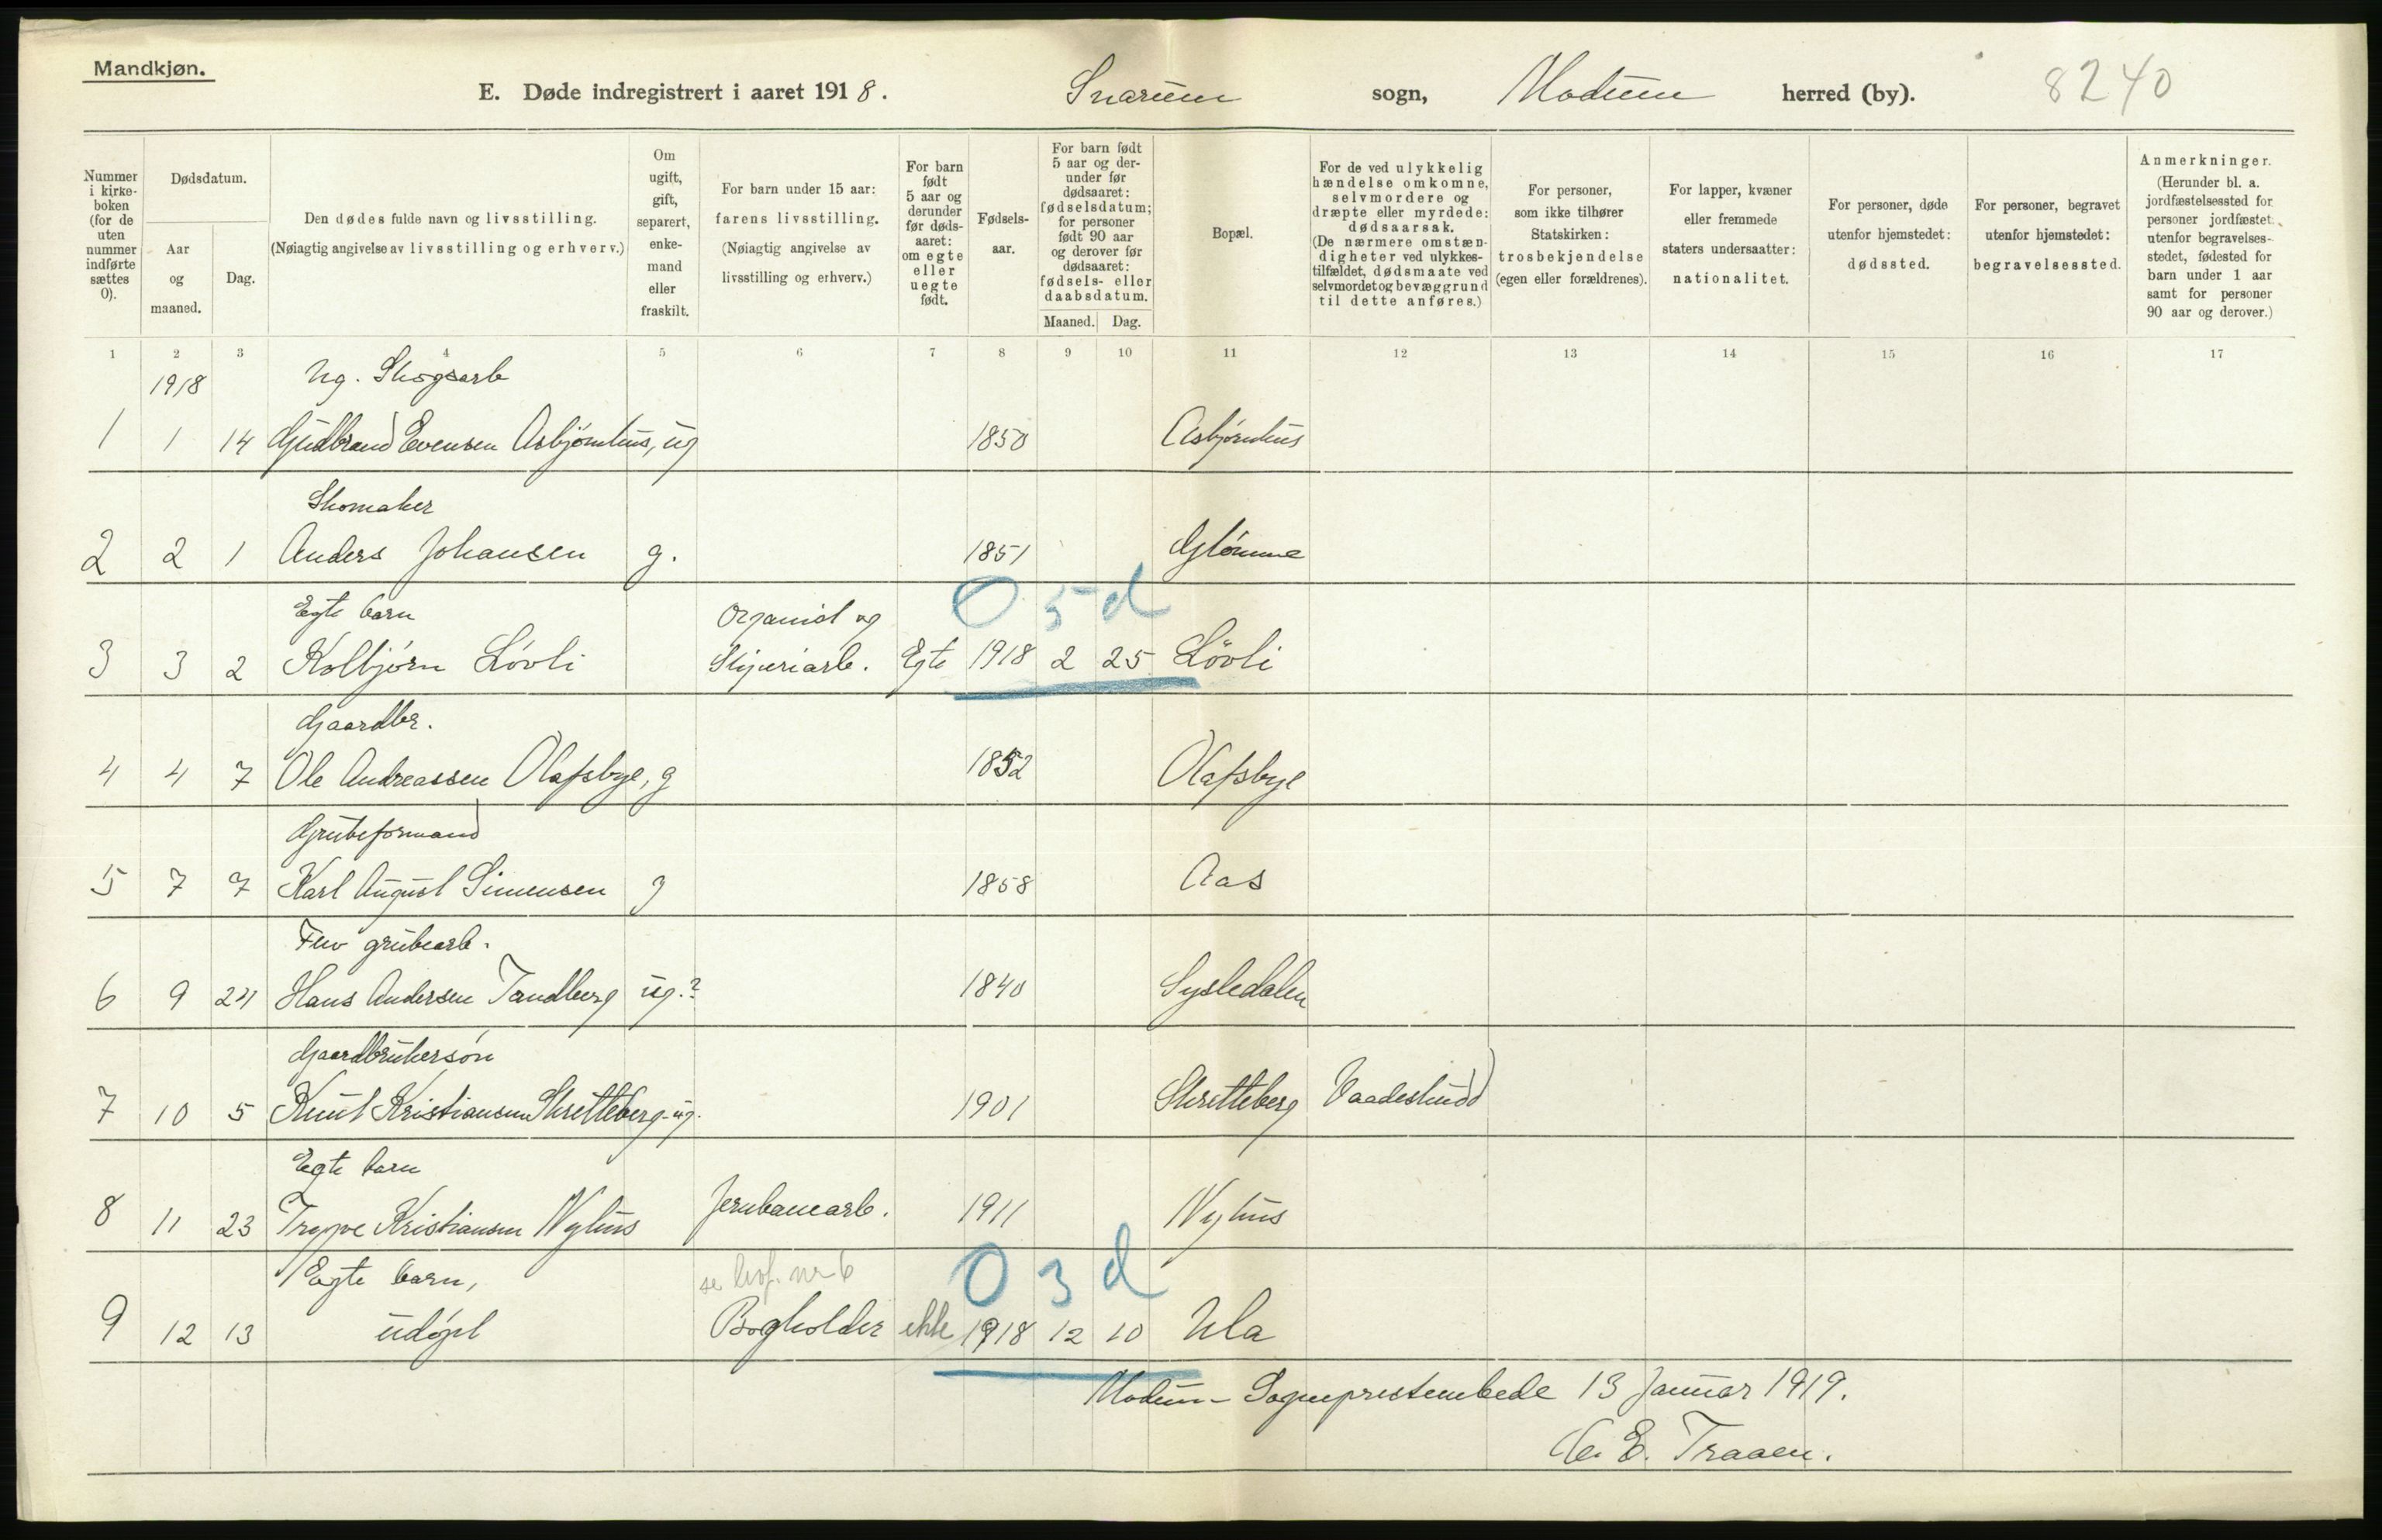 Mandkjøn.
E. Døde indregistrert i aaret 1918. Snarum sogn, Modum herred (by). 8240
Nummer i kirkeboken (for de uten nummer indførte sættes 0).
Dødsdatum.
Aar og maaned.
Dag.
Den dødes fulde navn og livsstilling. (Nøiagtig angivelse av livsstilling og erhverv.)
Om ugift, gift, separert, enkemand eller fraskilt.
For barn under 15 aar: farens livsstilling. (Nøiagtig angivelse av livsstilling og erhverv.)
For barn født 5 aar og derunder før dødsaaret: om egte eller uegte født.
Fødselsaar.
For barn født 5 aar og derunder før dødsaaret: fødselsdatum; for personer født 90 aar og derover før dødsaaret: fødsels- eller daabsdatum.
Maaned. Dag.
Bopæl.
For de ved ulykkelig hændelse omkomne, selvmordere og dræpte eller myrdede: dødsaarsak. (De nærmere omstændigheter ved ulykkestilfældet, dødsmaate ved selvmordet og bevæggrund til dette anføres.)
For personer, som ikke tilhører Statskirken: trosbekjendelse (egen eller forældrenes).
For lapper, kvæner eller fremmede staters undersaatter: nationalitet.
For personer, døde utenfor hjemstedet: dødssted.
For personer, begravet utenfor hjemstedet: begravelsessted.
Anmerkninger. (Herunder bl. a. jordfæstelsessted for personer jordfæstet utenfor begravelsesstedet, fødested for barn under 1 aar samt for personer 90 aar og derover.)
1 2 3 4 5 6 7 8 9 10 11 12 13 14 15 16 17
1918 Ug. Skogsarb
1 1 14 Gudbrand Evensen Asbjørnhus, ug 1850 Asbjørnhus
Skomaker
2 2 1 Anders Johansen g. 1851 Glømme
Egte barn Organist og 0 5 d
3 3 2 Kolbjørn Løvli Sliperiarb. Egte 1918 2 25 Løvli
Gaardbr.
4 4 7 Ole Andreassen Olafsbye, g 1852 Olafsbye
Grubeformand
5 7 7 Karl August Simensen g 1858 Aas
Fhv grubearb.
6 9 24 Hans Andersen Tandberg ug.? 1840 Sysledalen
Gaardbrukersøn
7 10 5 Knut Kristiansen Skretteberg ug. 1901 Skretteberg Vaadeskudd
Egte barn
8 11 23 Trygve Kristiansen Nyhus Jernbanearb. 1911 Nyhus
Egte barn, se lvf. nr 6 0 3 d
9 12 13 udøpt Bogholder ekte 1918 12 10 Ula
Modum Sogneprestembede 13 Januar 1919.
E. Traaen.